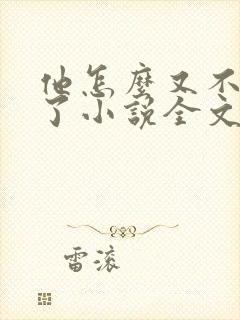 他怎麼又不
了小說全文
雷滾